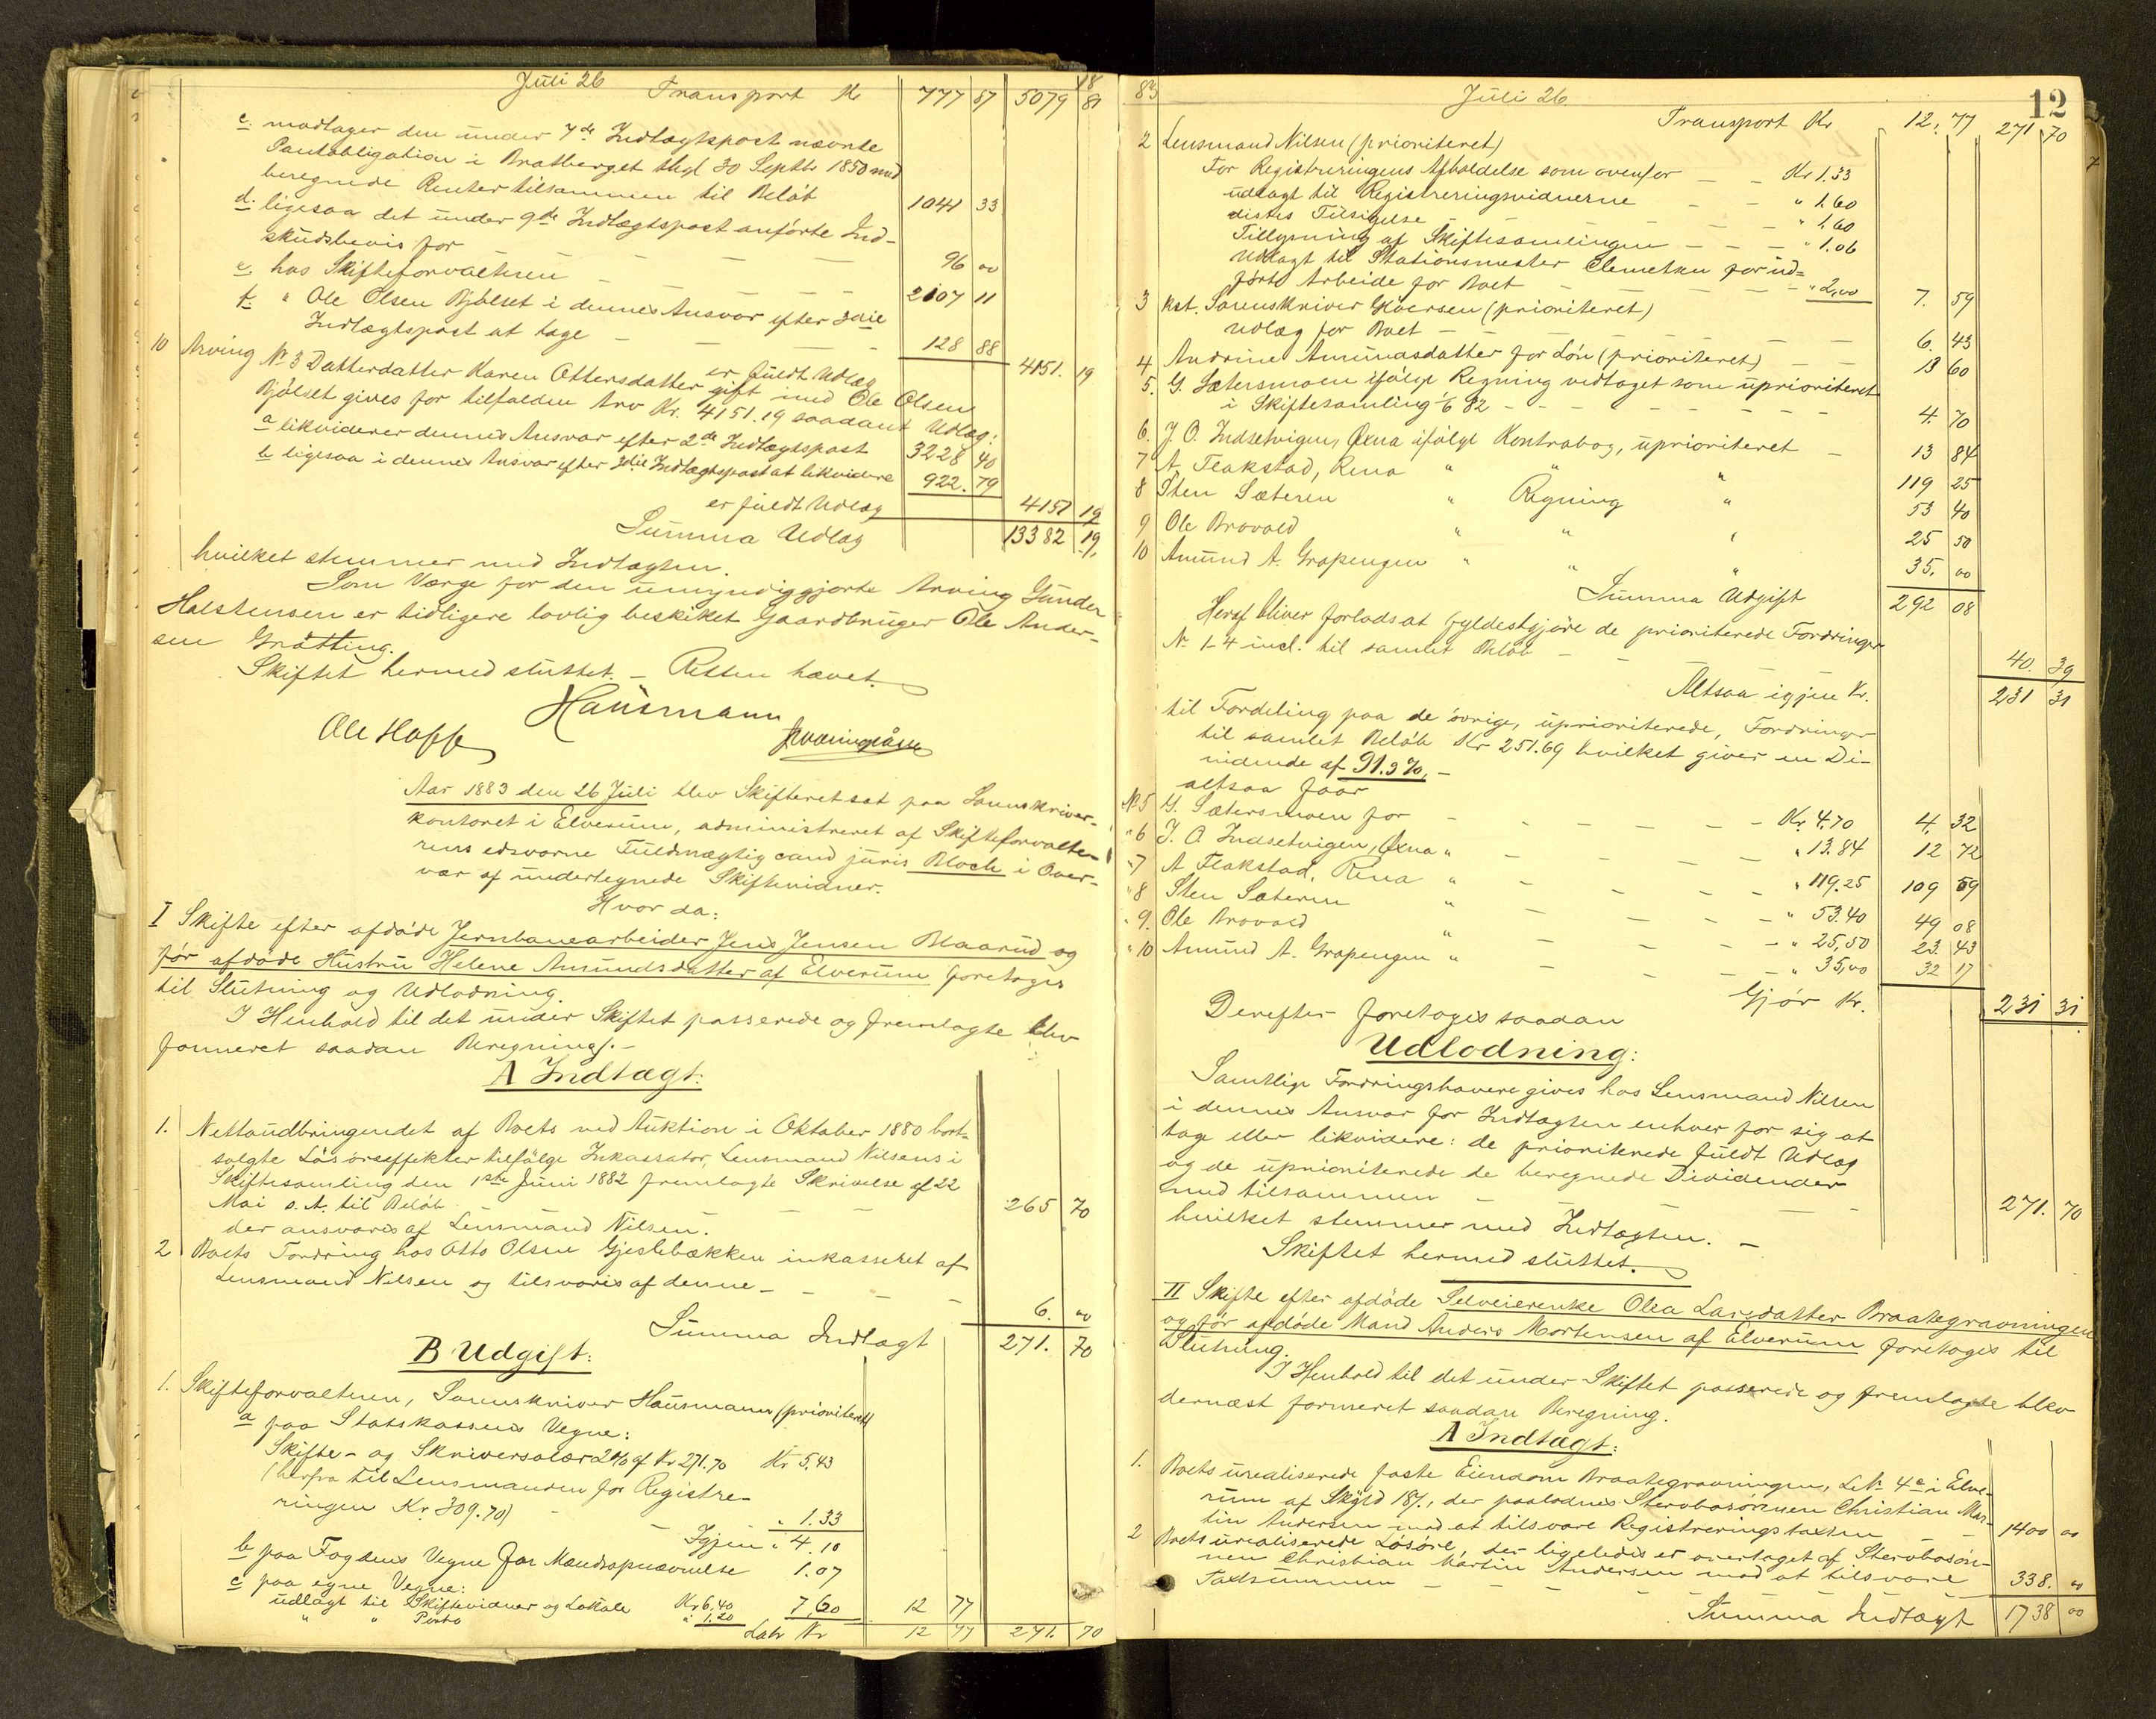 Juli 26 18
Transport Kr 777 87 5079 81
c. modtager den under 7de Indtægtspost nævnte
Pantobligation i Bratberget thgl 30 Septbr 1850 med
beregnede Renter tilsammen til Beløb 1041 33
d. ligesaa det under 9de Indtægtspost anførte Ind-
skudsbevis for — — — 96 00
e. hos Skifteforvalteren — — — 2107 11
f. " Ole Olsen Bjølset i dennes Ansvar efter 3die
Indtægtspost at tage — — — 128 88
er fuldt Udlæg 4151. 19
10 Arving No 3 Datterdatter Karen Ottersdatter gift med Ole Olsen
Bjølset gives for tilfalden Arv Kr. 4151.19 saadant Udlæg:
a likviderer dennes Ansvar efter 2de Indtægtspost 3228 40
b ligesaa i dennes Ansvar efter 3die Indtægtspost at likvidere 922. 79
er fuldt Udlæg 4151 19
Summa Udlæg 13382 19.
hvilket stemmer med Indtægten.
Som Værge for den umyndiggjorte Arving Gunder
Halstensen er tidligere lovlig beskikket Gaardbruger Ole Ander-
sen Grøtting.
Skiftet hermed sluttet. — Retten hævet.
Hausmann
Ole Hoff
Aar 1883 den 26 Juli blev Skifteret sat paa Sorenskriver-
kontoret i Elverum, administreret af Skifteforvalte-
rens edsvorne Fuldmægtig cand juris Bloch i Over-
vær af undertegnede Skiftevidner.
Hvor da:
I Skifte efter afdøde Jernbanearbeider Jens Jensen Blaarud og
før afdøde Hustru Helene Amundsdatter af Elverum foretages
til Slutning og Udlodning.
I Henhold til det under Skiftet passerede og fremlagte blev
formeret saadan Beregning: —
A Indtægt:
1. Nettoudbringendet af Boets ved Auktion i Oktober 1880 bort-
solgte Løsøreeffekter tilfølge Inkassator, Lensmand Nilsens i
Skiftesamling den 1ste Juni 1882 fremlagte Skrivelse af 22
Mai s. A. til Beløb — — — 265 70
der ansvares af Lensmand Nilsen.
2 Boets Fordring hos Otto Olsen Gjeslebækken inkasseret af
Lensmand Nilsen og tilsvares af denne — — — 6. 00
Summa Indtægt 271. 70
B Udgift:
1. Skifteforvalteren, Sorenskriver Hausmann (prioriteret)
a paa Statskassens Vegne:
Skifte- og Skriversalær 2% af Kr 271.70 Kr 5.43
(herfra til Lensmanden for Registre-
ringen Kr. 309.70) — — " 1.33
Igjen " 4.10
b paa Fogdens Vegne for Mændsopnævnelse 1.07
c paa egne Vegne:
udlagt til Skiftevidner og Lokale Kr 6.40
" " Porto " 1.20 7,60 12 77
Latr Kr 12 77 271. 70
83 Juli 26 12
Transport Kr 12. 77 271 70
2 Lensmand Nilsen (prioriteret)
For Registreringens Afholdelse som ovenfor — — Kr 1.33
udlagt til Registreringsvidnerne — — " 1.60
disses Tilsigelse — — " 1.60
Tillysning af Skiftesamlingen — — — " 1.06
Udlagt til Stationsmester Clemetsen for ud-
ført Arbeide for Boet — — — " 2,00 7. 59
3 kst. Sorenskriver Iversen (prioriteret)
Udlæg for Boet — — — 6. 43
4 Andrine Amundsdatter for Løn (prioriteret) — 13 60
5. G. Sætersmoen ifølge Regning vedtaget som uprioriteret
i Skiftesamling 1/6 82 — — — 4. 70
6. J. O. Indsetvigen, Øxna ifølge Kontrabog, uprioriteret — 13 84
7 A. Flakstad, Rena " " " 119 25
8 Sten Sæteren " Regning " 53 40
9 Ole Brovold " " " 25 50
10 Amund A. Grapengen " " " 35. 00
Summa Udgift 292 08
Heraf bliver forlods at fyldestgjøre de prioriterede Fordringer
No 1-4 incl. til samlet Beløb — — 40. 39
Altsaa igjen Kr. 231 31
til Fordeling paa de øvrige, uprioriterede, Fordringer
til samlet Beløb Kr 251.69 hvilket giver en Di-
vidende af 91.9 %. —
altsaa faar
No 5 G. Sætersmoen for — — — Kr. 4.70 4. 32
" 6 J. O. Indsetvigen, Øxna " — — — " 13.84 12 72
" 7 A Flakstad, Rena " — — — " 119.25 109 59
" 8 Sten Sæteren " — — — " 53.40 49 08
" 9. Ole Brovold " — — — " 25,50 23. 43
" 10 Amund A. Grapengen " — — — " 35,00 32 17
Gjør Kr. 231 31
Derefter foretoges saadan
Udlodning:
Samtlige Fordringshavere gives hos Lensmand Nilsen
i dennes Ansvar for Indtægten enhver for sig at
tage eller likvidere: de prioriterede fuldt Udlæg
og de uprioriterede de beregnede Dividender
med tilsammen — — — 271. 70
hvilket stemmer med Indtægten. —
Skiftet hermed sluttet.
II Skifte efter afdøde Selveierenke Olea Larsdatter Braategravningen
og før afdøde Mand Anders Mortensen af Elverum foretages til
Slutning.
I Henhold til det under Skiftet passerede og fremlagte blev
dernæst formeret saadan Beregning.
A Indtægt:
1. Boets urealiserede faste Eiendom Braategravningen, L.No 4c i Elve-
rum af Skyld 18/., der paalodnes Stervbosønnen Christian Mar-
tin Andersen mod at tilsvare Registreringstaxten — — 1400 00
2 Boets urealiserede Løsøre, der ligeledes er overtaget af Stervbosøn-
nen Christian Martin Andersen mod at tilsvare
Taxtsummen — — — 338. 00
Summa Indtægt 1738 00